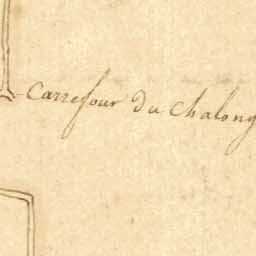 Carrefour du Chalong